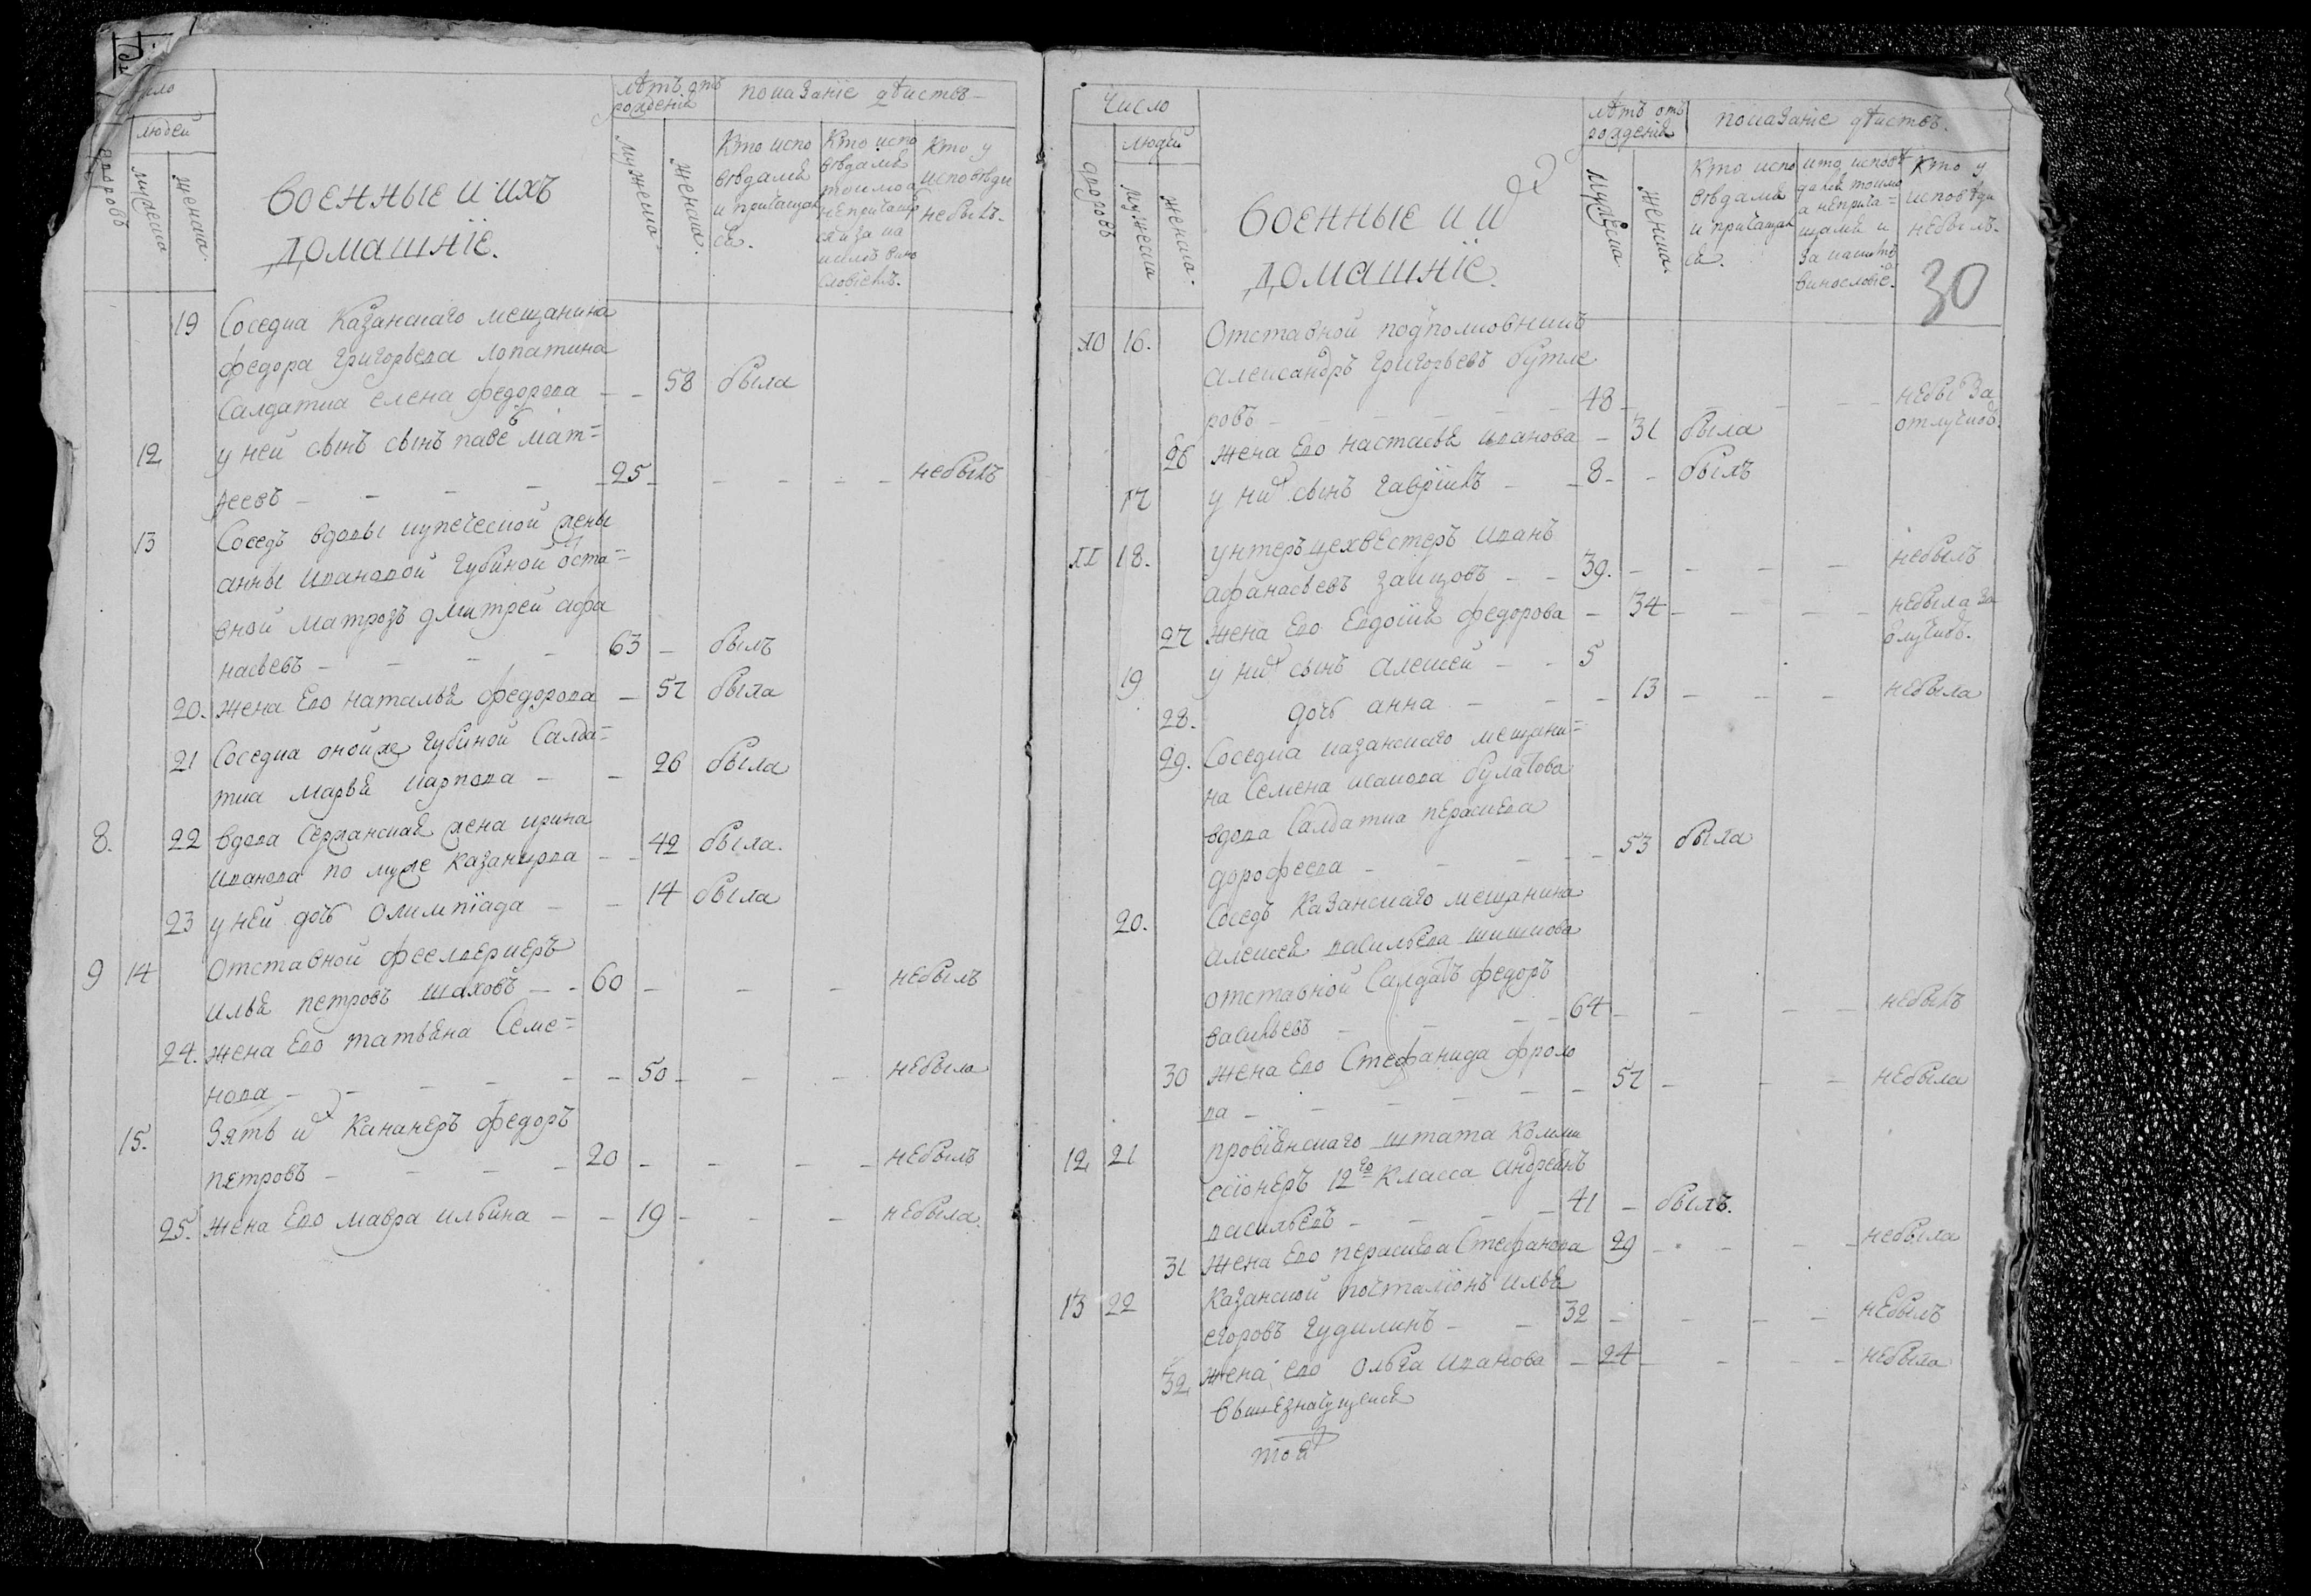 людей
дворовъ
мужеска
женска.
военные и ихъ
домашнїе.
лѣтъ отъ
рожденїя
мужеска.
женска.
показанїе дѣйствъ
Кто испо
вѣдался
и причащал
ся.
Кто испо
вѣдался
токмо а
не причащал
ся и за ка
кимъ вино
словїемъ.
Кто у
исповѣди
небылъ.
19 Соседка Казанскаго мещанина
федора григорьева лопатина
Салдатка елена федорова – – 58 была
12 у ней сынъ сынъ паве мат=
веевъ – – – – 25 – – – – небылъ
13 Соседъ вдовы купеческой жены
анны ивановой губиной отста=
вной матрозъ дмитрей афа
насьевъ – – – – 63 – былъ
20. жена Его наталья федорова – 57 была
21 Соседка онойже губиной Салда=
тка марья карпова – – 26 была
8. 22 вдова сержанская жена ирина
иванова по муже казанцова – – 42 была.
23 у ней дочь олимпїада – – 14 была
9 14 Отставной феелверкеръ
илья петровъ шаховъ – – 60 – – – небылъ
24. жена Его татьяна Семе=
нова – – – – – 50 – – – небыла
15. Зять их Кананеръ федоръ
петровъ – – – – 20 – – – – небылъ
25. жена Его мавра ильина – – 19 – – – небыла.
Число
людей
дворовъ
мужеска
женска.
военные и их
домашнїе.
лѣтъ отъ
рожденїя
мужеска
женска.
показанїе дѣйствъ.
Кто испо
вѣдался
и причащал
ся.
кто исповѣ
дался токмо
а неприча=
щался и
за какимъ
винословїе.
Кто у
исповѣди
небылъ.
30
10 16. Отставной подполковникъ
александръ григорьевъ бутле
ровъ – – – – – 48 – – – – небы за
отлучкою.
26 жена Его настасья иванова – 31 была
17 у них сынъ гаврїилъ – – 8 – – былъ
11 18. унтеръ цехвестеръ иванъ
афанасьевъ зайцовъ – – 39. – – – – небылъ
27 жена Его Евдокия федорова – 34 – – – – небыла за
отлучкою.
19 у них сынъ алексей – – 5
28. дочь анна – – – 13 – – – небыла
29. Соседка казанскаго мещани=
на Семена иванова булатова
вдова Салдатка параскева
дорофеева – – – – – 53 была
20. Соседъ Казанскаго мещанина
алексея васильева шишкова
отставной Салдатъ федоръ
васильевъ – – – – 64 – – – – небылъ
30 жена Его Стефанида фроло
ва – – – – – – 57 – – – небыла
12 21 провїанскаго штата Комми
ссїонеръ 12го класса андреянъ
васильевъ – – – – 41 – былъ.
31 жена Его параскева Стефанова 29 – – – – небыла
13 22 Казанской почталїонъ илья
егоровъ гудилинъ – – 32 – – – – небылъ
32 жена его ольга иванова – 24 – – – – небыла